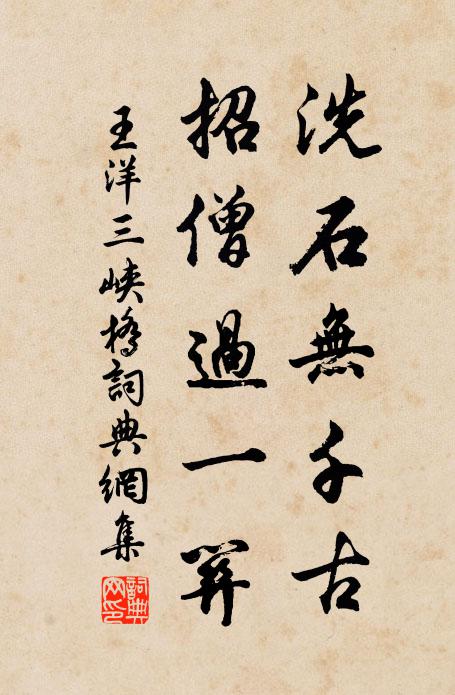 洗石無千古
招僧過一
王洋三峽橋詞典網集
詞典網印